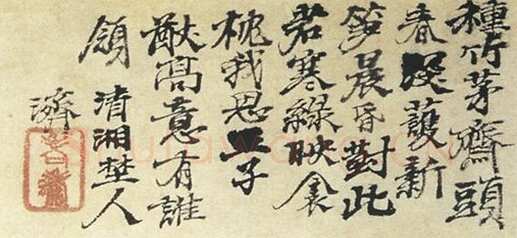 種竹茅齋頭
春深護新
笋晨昏對此
君寒綠映衾
枕我思王子
猷高意有誰
領 清湘埜人
濟